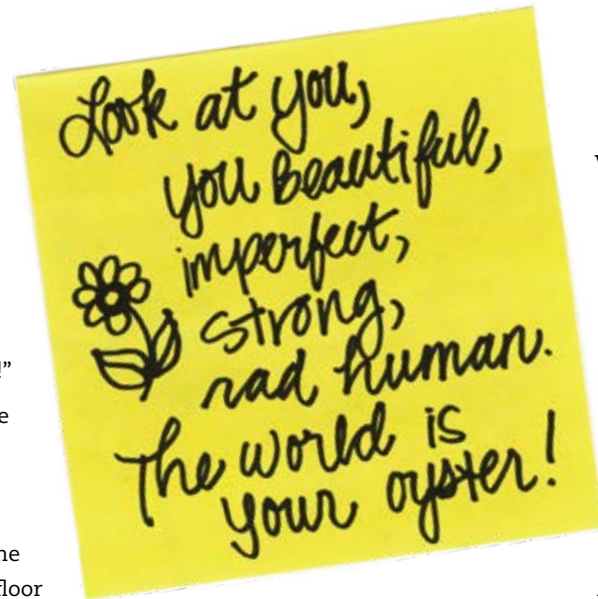 Look at you,
you beautiful,
imperfect,
strong,
rad human.
The world is
your oyster!
!”
e
ne
floor